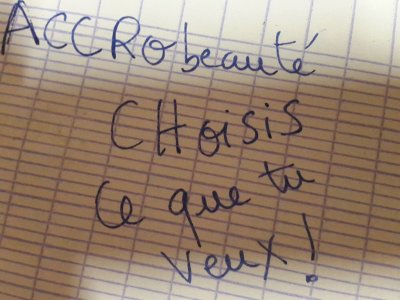 ACCRobeauté
CHoisis
Ce que tu
veux !